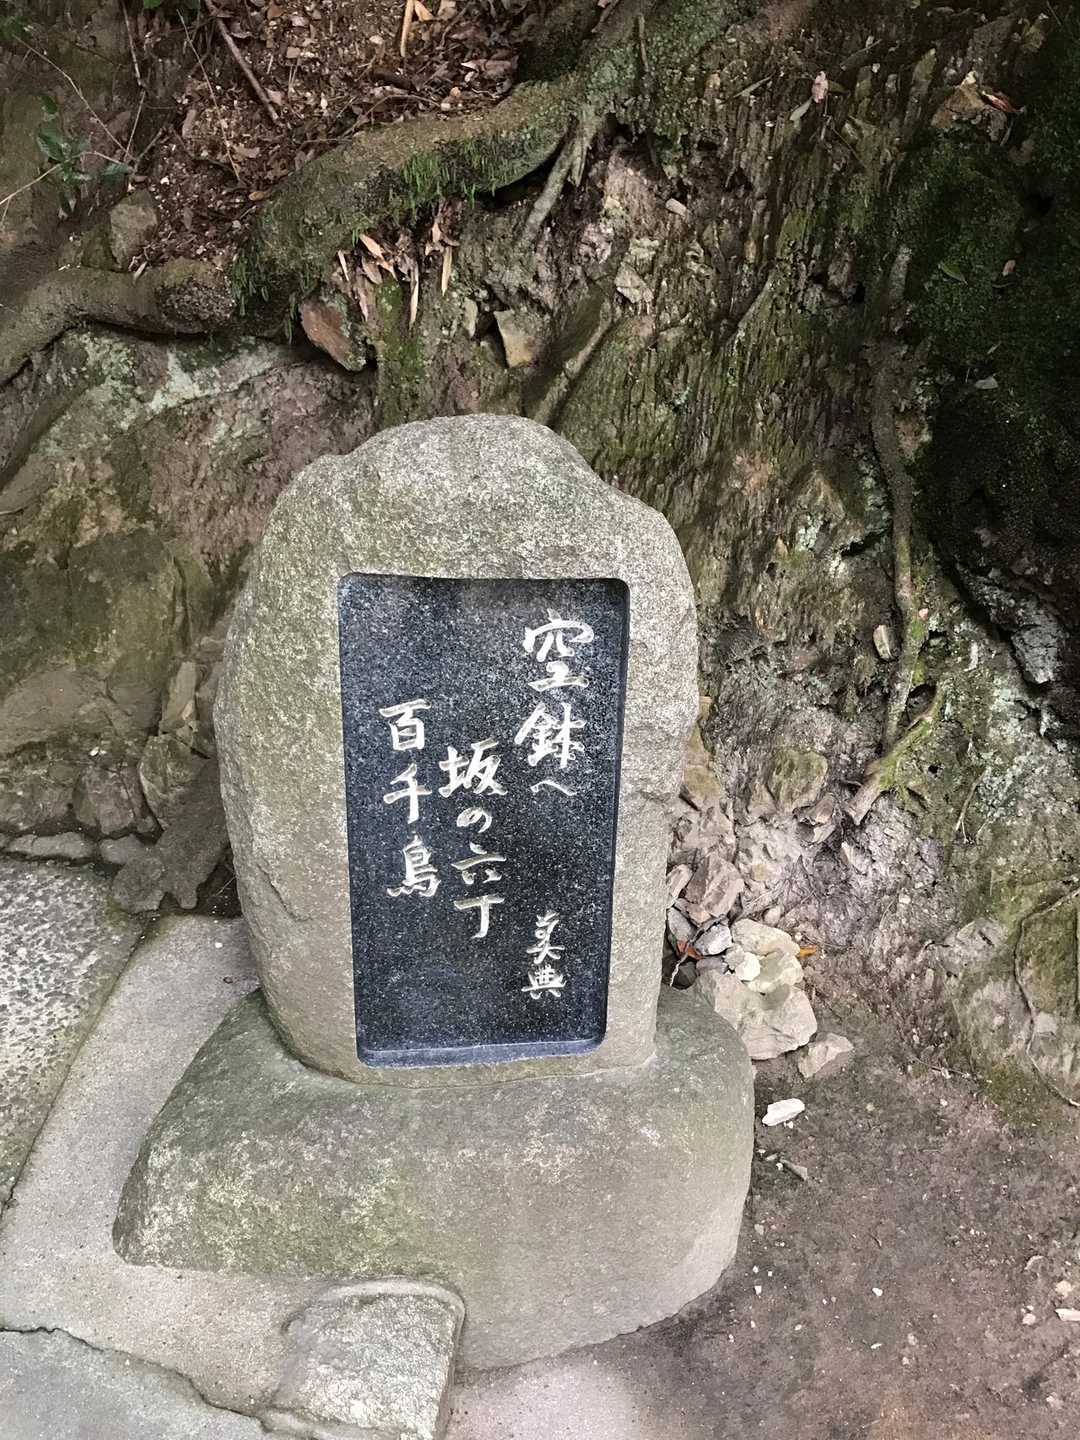 空鉢へ
坂の六丁
百千鳥
美典